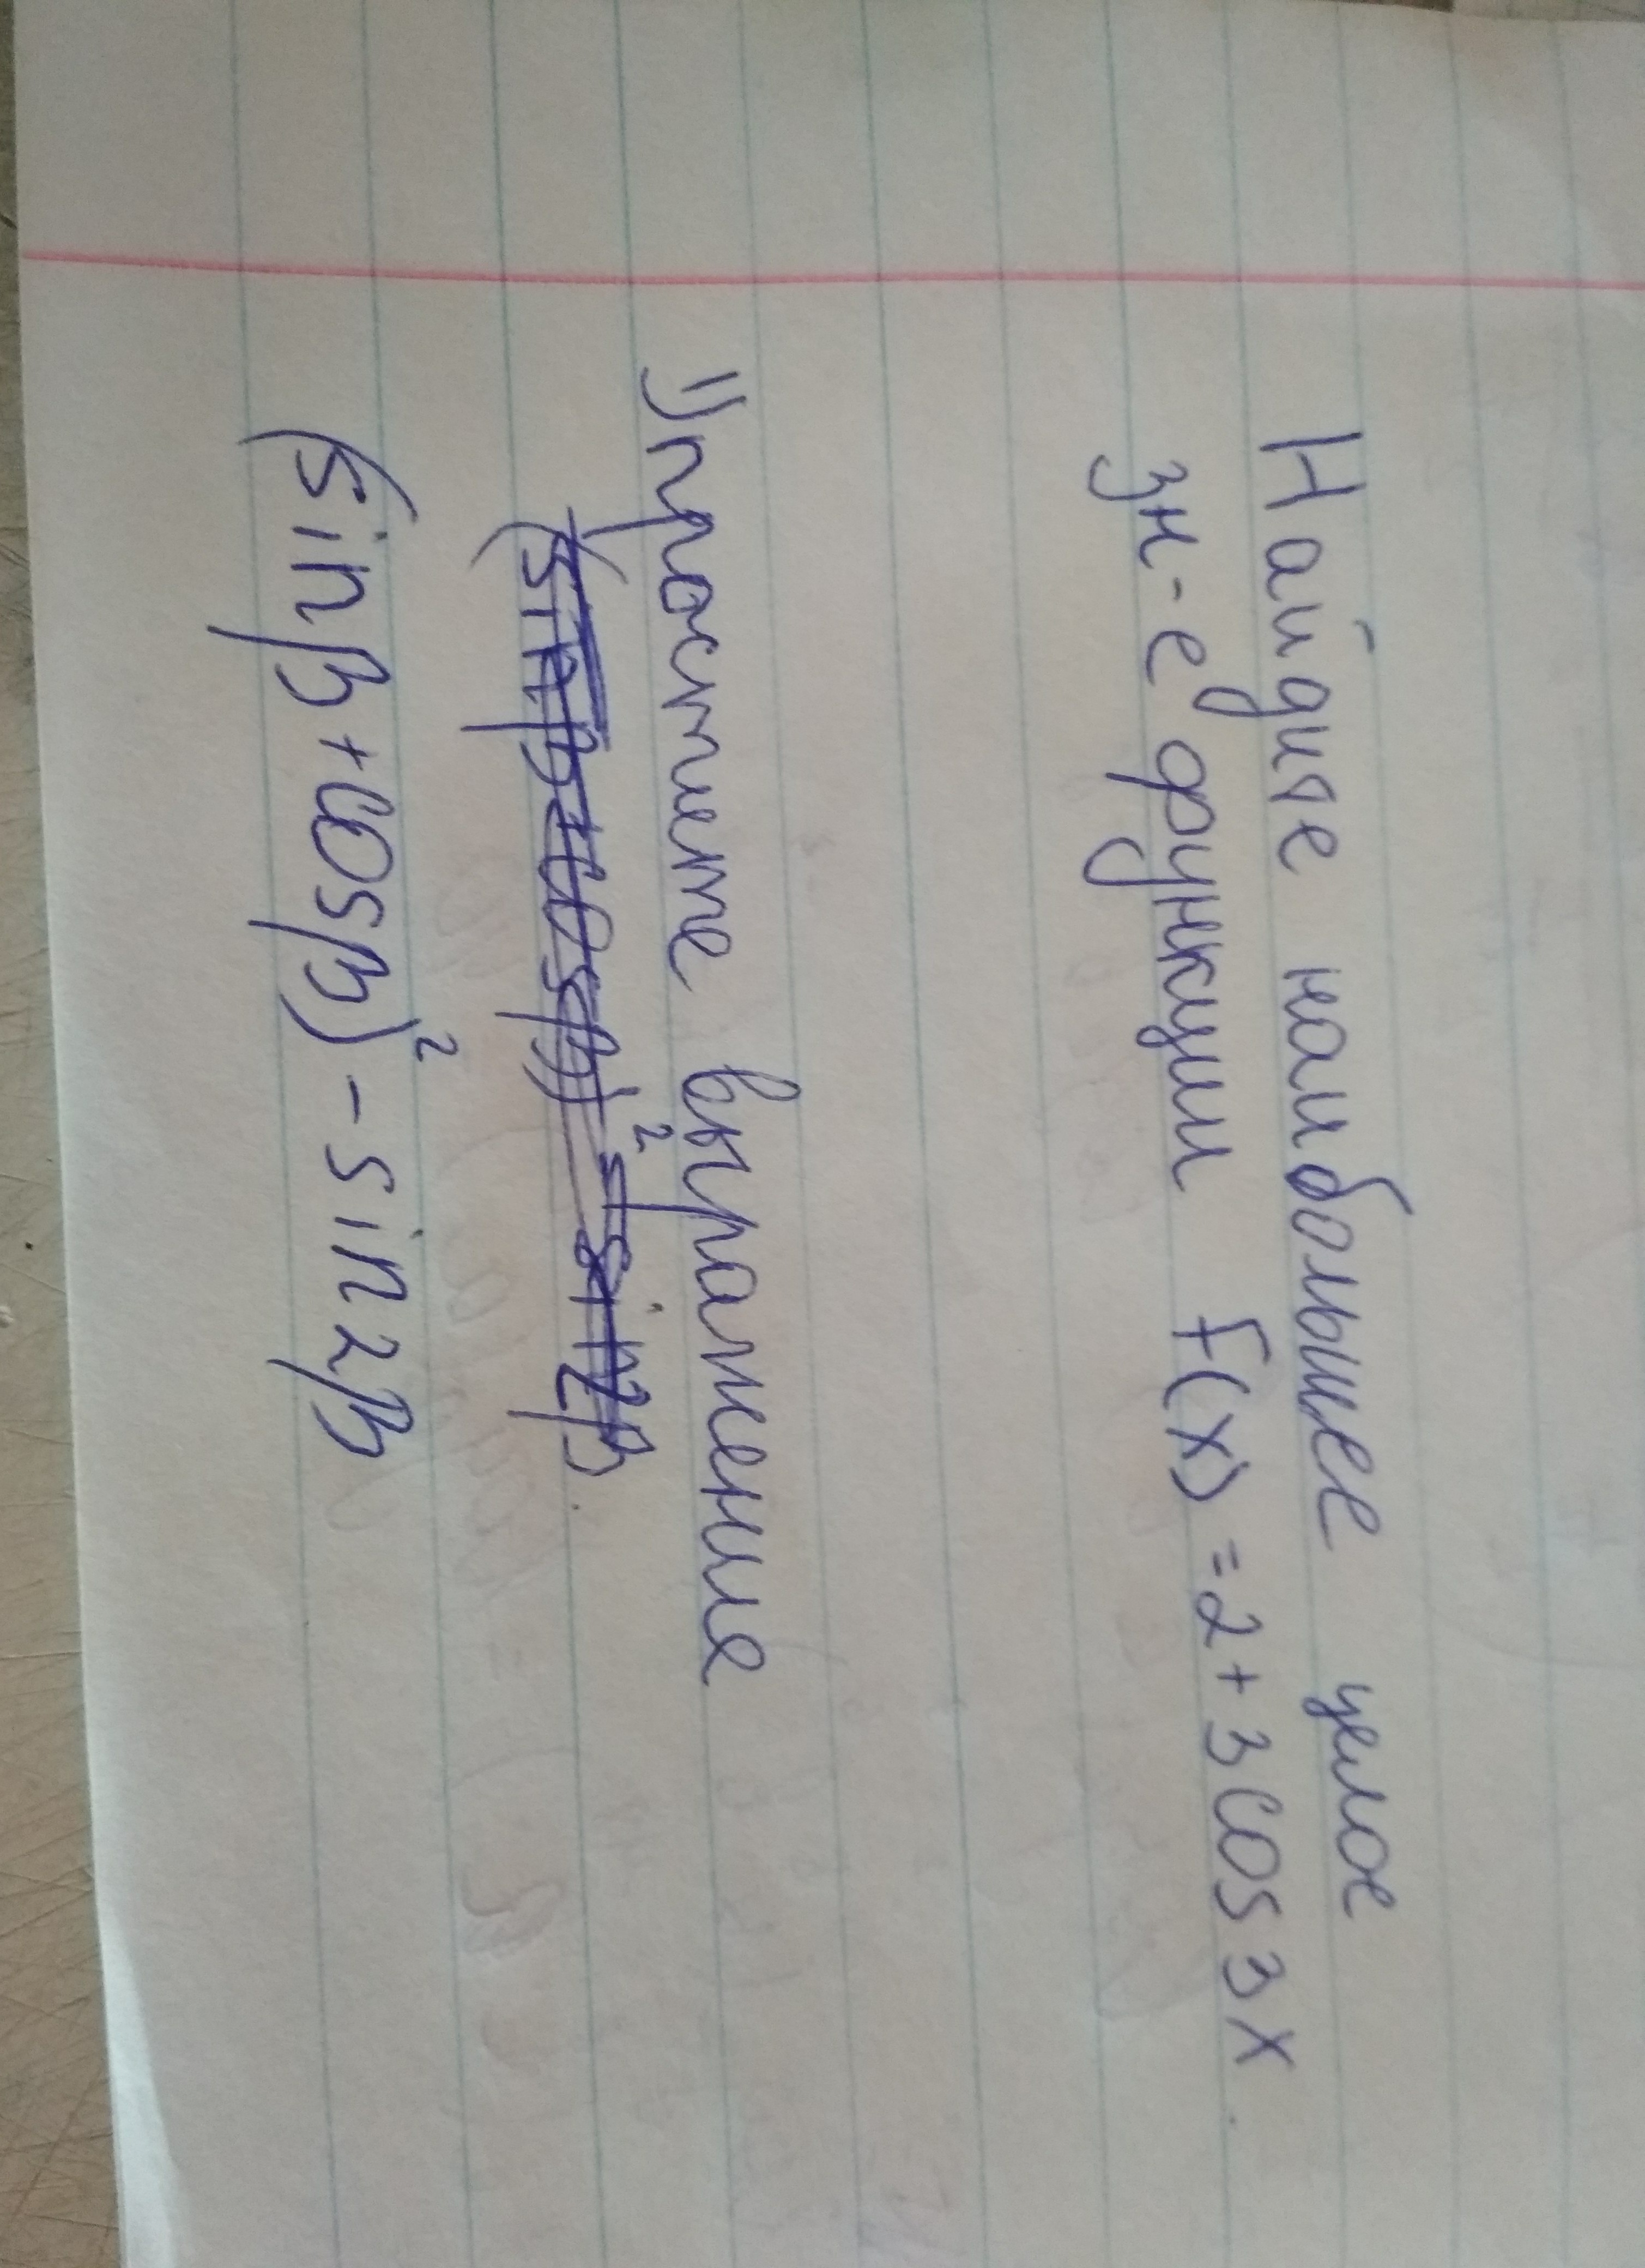 Найдите наибольшее целое
зн-е функции f(x) = 2 + 3 cos 3x
Упростите выражение
(sinβ+cosβ)² - sin2β
(sinβ+cosβ)² - sin2β